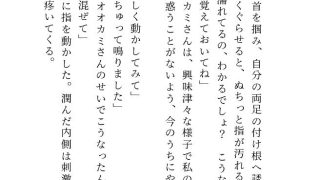 首を掴み、自分の両足の付け根へ誘
くぐらせると、ぬちっと指が汚れる
濡れてるの、わかるでしょ？　こうな
覚えておいてね」
カミさんは、興味津々な様子で私の
惑うことがないよう、今のうちにや
しく動かしてみて」
ちゅって鳴りました」
オオカミさんのせいでこうなったん
混ぜて」
に指を動かした。潤んだ内側は刺激
疼いてくる。